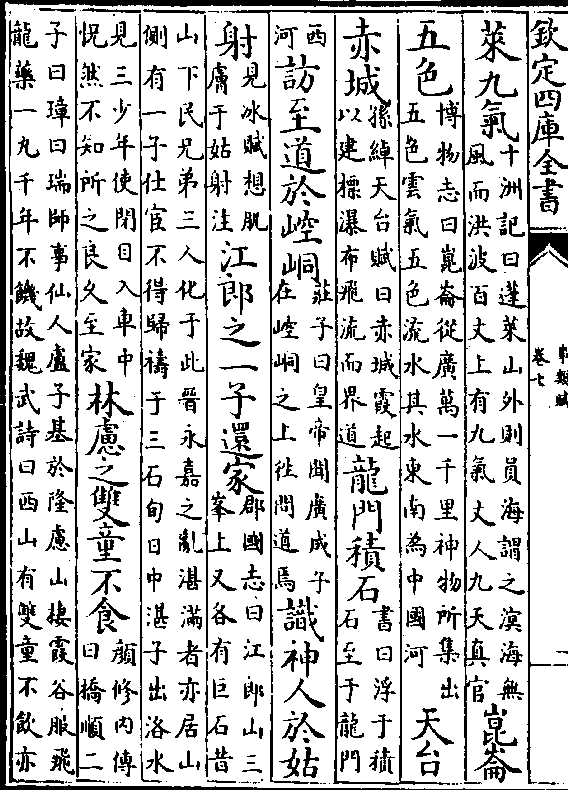 欽定四庫全書
事類賦
卷七
一
萊九氣十洲記曰蓬萊山外則員海謂之溟海無風而洪波百丈上有九氣丈人九天真官崑崙
五色博物志曰崑崙從廣萬一千里神物所集出五色雲氣五色流水其水東南為中國河天台
赤城孫綽天台賦曰赤城霞起以建標瀑布飛流而界道龍門積石書曰浮于積石至于龍門
西河訪至道於崆峒莊子曰皇帝聞廣成子在崆峒之上徃問道焉識神人於姑
射見冰賦想肌膚于姑射注江郎之一子還家郡國志曰江郎山三峯上又各有巨石昔
山下民兄弟三人化于此晉永嘉之亂湛滿者亦居山側有一子仕宦不得歸禱于三石旬日中湛子出洛水
見三少年使閉目入車中怳然不知所之良久至家林慮之雙童不食顔修内傳曰橋順二
子曰璋曰瑞師事仙人盧子基於隆慮山棲霞谷服飛龍藥一九千年不饑故魏武詩曰西山有雙童不飲亦